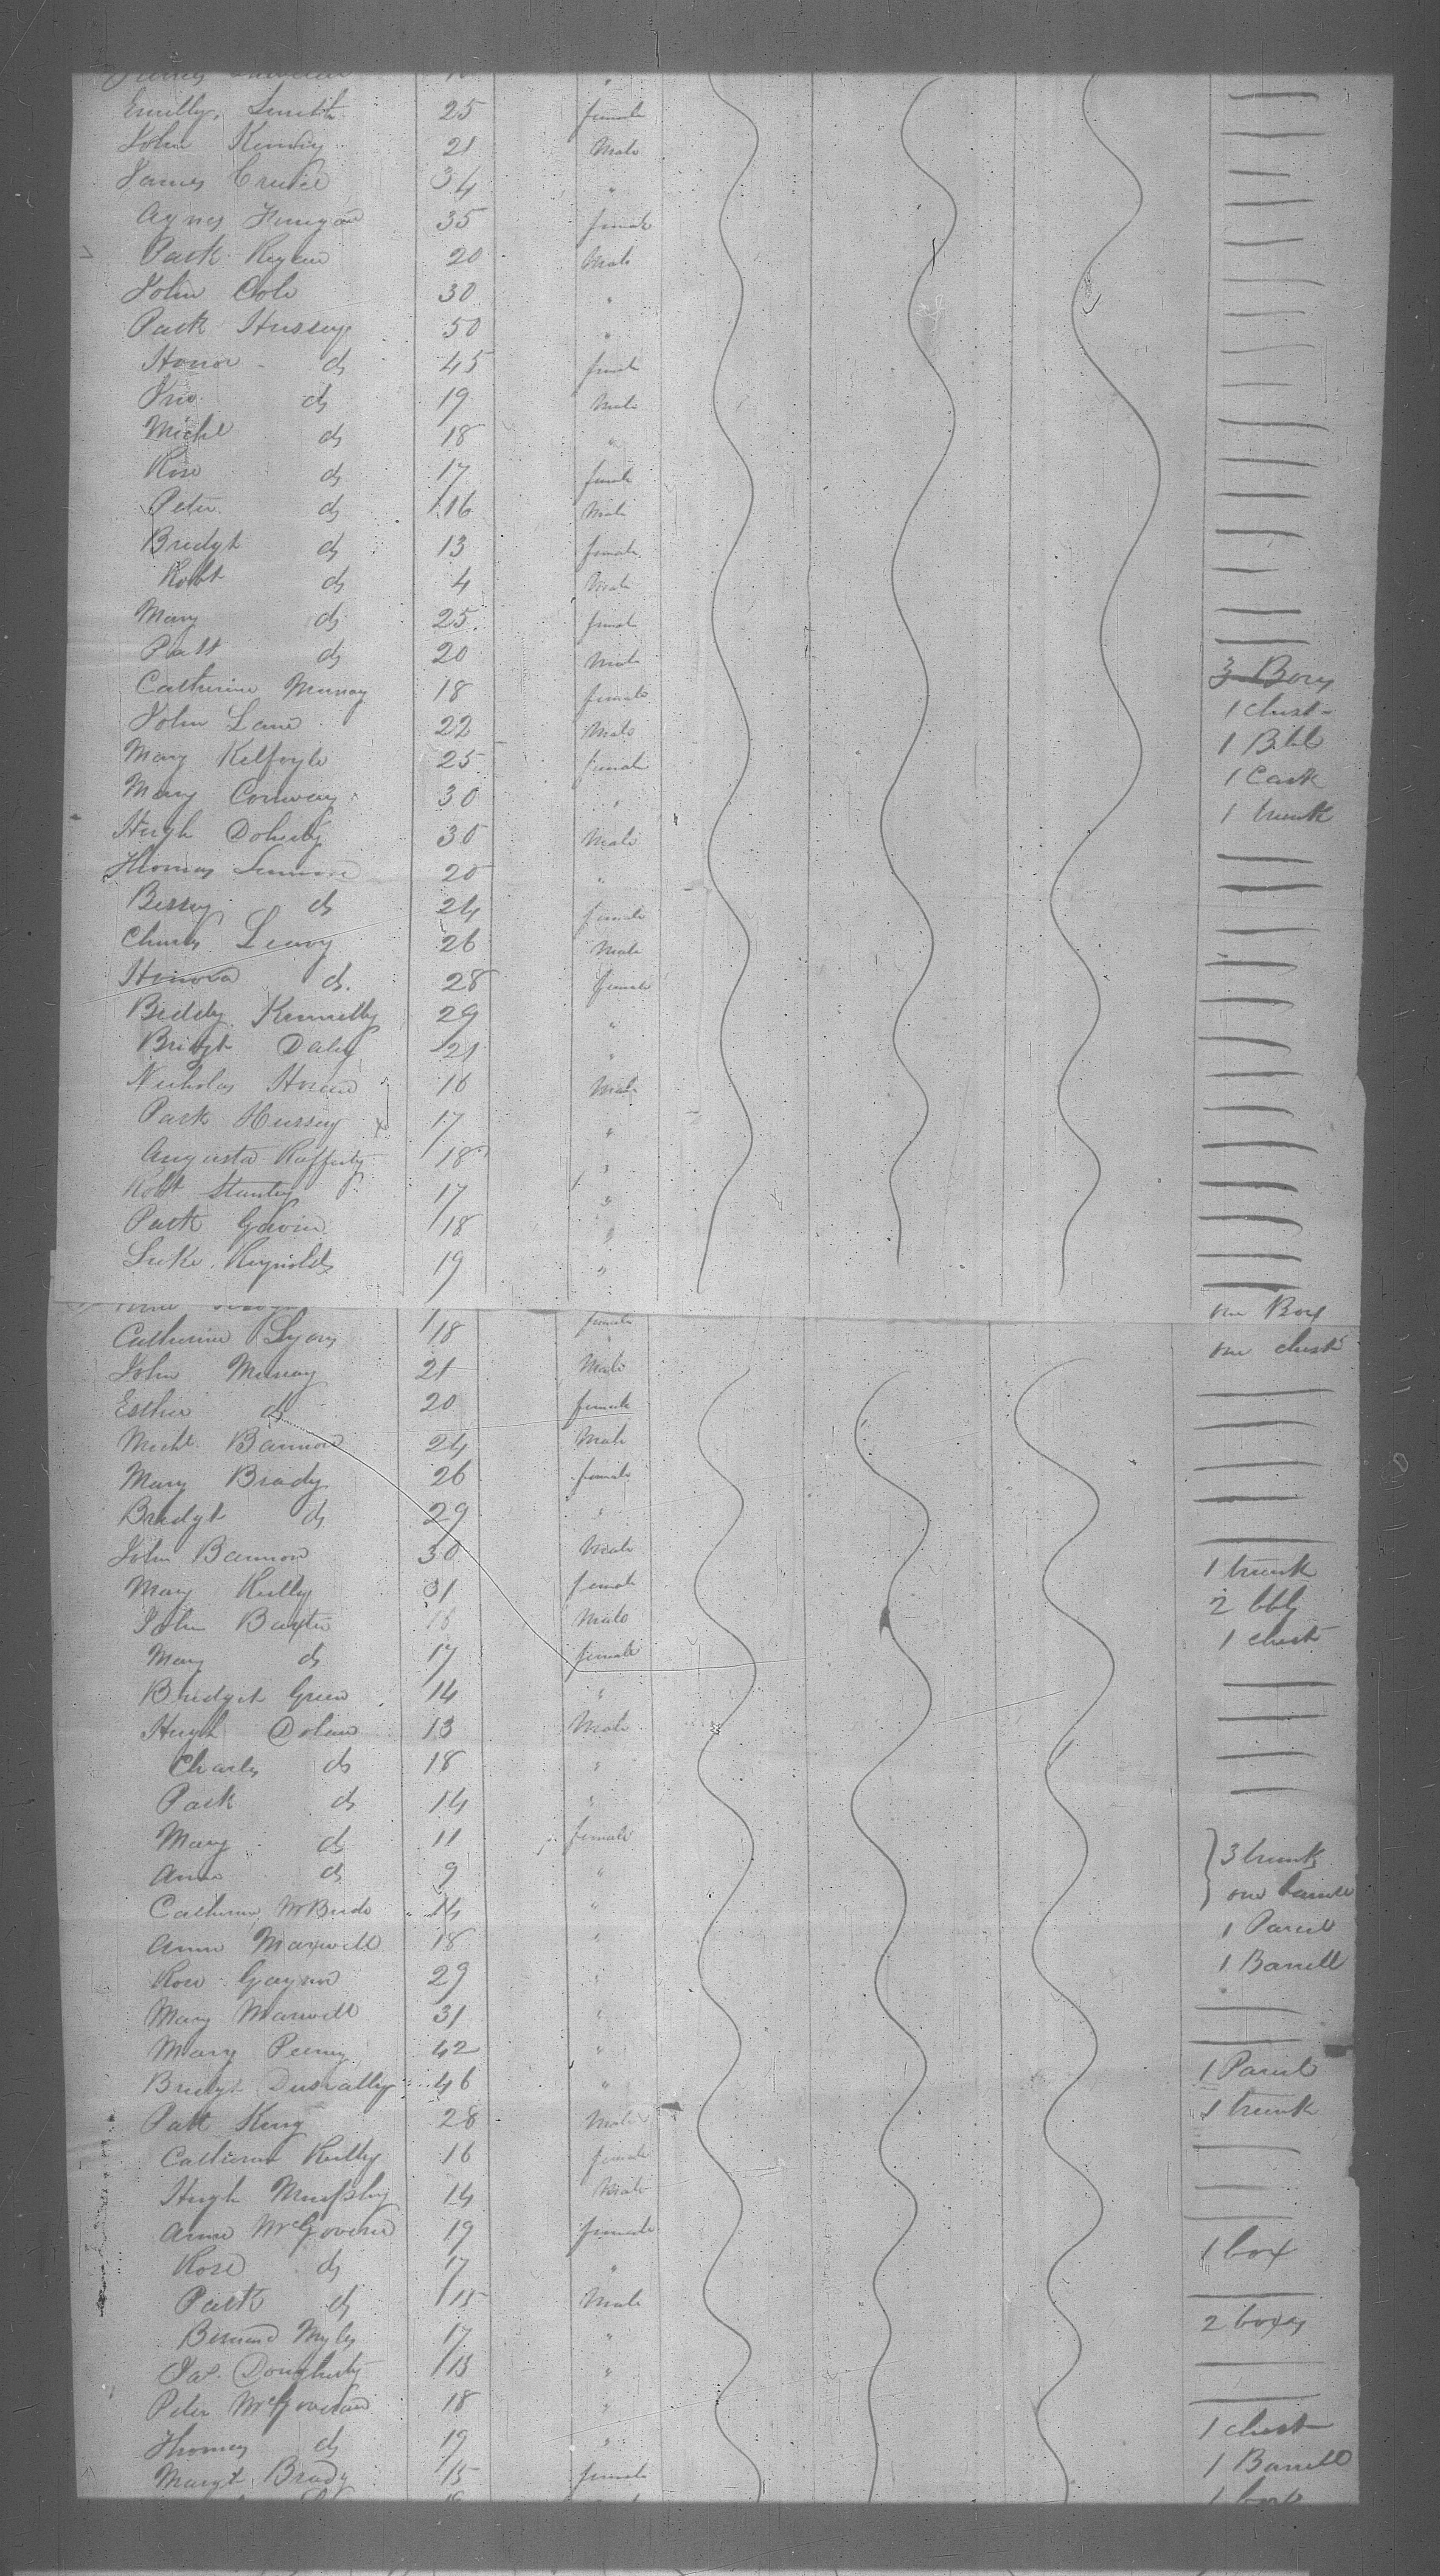 Emilly Smith 25 female
John Kenny 21 Male
James 34 "
Agnes 35 female
Patk 20 Male
John Cole 30 "
Patk Hussey 50 "
Honor do 45 female
do 19 Male
Michl do 18 "
Rose do 17 female
Peter do 16 Male
Bridgt do 13 female
Robt do 4 Male
Mary do 25 female
Patt do 20 Male 3 Boxes
Catherine Murray 18 female 1 chest
John Lane 22 Male 1 Bbl
Mary Kelfoyle 25 female 1 Cask
Mary Conway 30 " 1 trunk
Hugh Doherty 30 Male
Thomas 20 "
Bessey do 24 female
Charles Leavy 26 Male
Honora do 28 female
Biddy Kennelly 29 "
Bridgt Daley 21 "
Nicholas Horan 16 Male
Patk Hussey 17 "
Augusta Rafferty 18 "
Robt Stanley 17 "
Patk Gavin 18 "
Luke Reynolds 19 "
female one Box
Catherine Lyons 18 " one chest
John Murray 21 Male
Esther do 20 female
Michl Bannon 24 Male
Mary Brady 26 female
Bridgt do 29 "
John Bannon 30 Male
Mary Reilly 31 female 1 trunk
John Baxter Male 2 bbls
Mary do 17 female 1 chest
Bridget Green 14 "
Hugh Dolan 13 Male
Charles do 18 "
Patk do 14 "
Mary do 11 female 3 trunks
Anne do 9 " one barrell
Catherine McBride 14 " 1 Parcel
Anne Maxwell 18 " 1 Barrell
Rose Gaynor 29 "
Mary Maxwell 31 "
Mary Penny 42 " 1 Parcel
Bridgt 46 " 1 trunk
Patt King 28 Male
Catherine Reilly 16 female
Hugh Murphy 14 Male
Anne McGovern 19 female 1 box
Rose do 17 "
Patk do 15 Male 2 boxes
Bernard Myles 17 "
Jas. Dougherty 15 "
Peter McGovern 18 " 1 chest
Thomas do 19 " 1 Barrell
Margt Brady 15 female